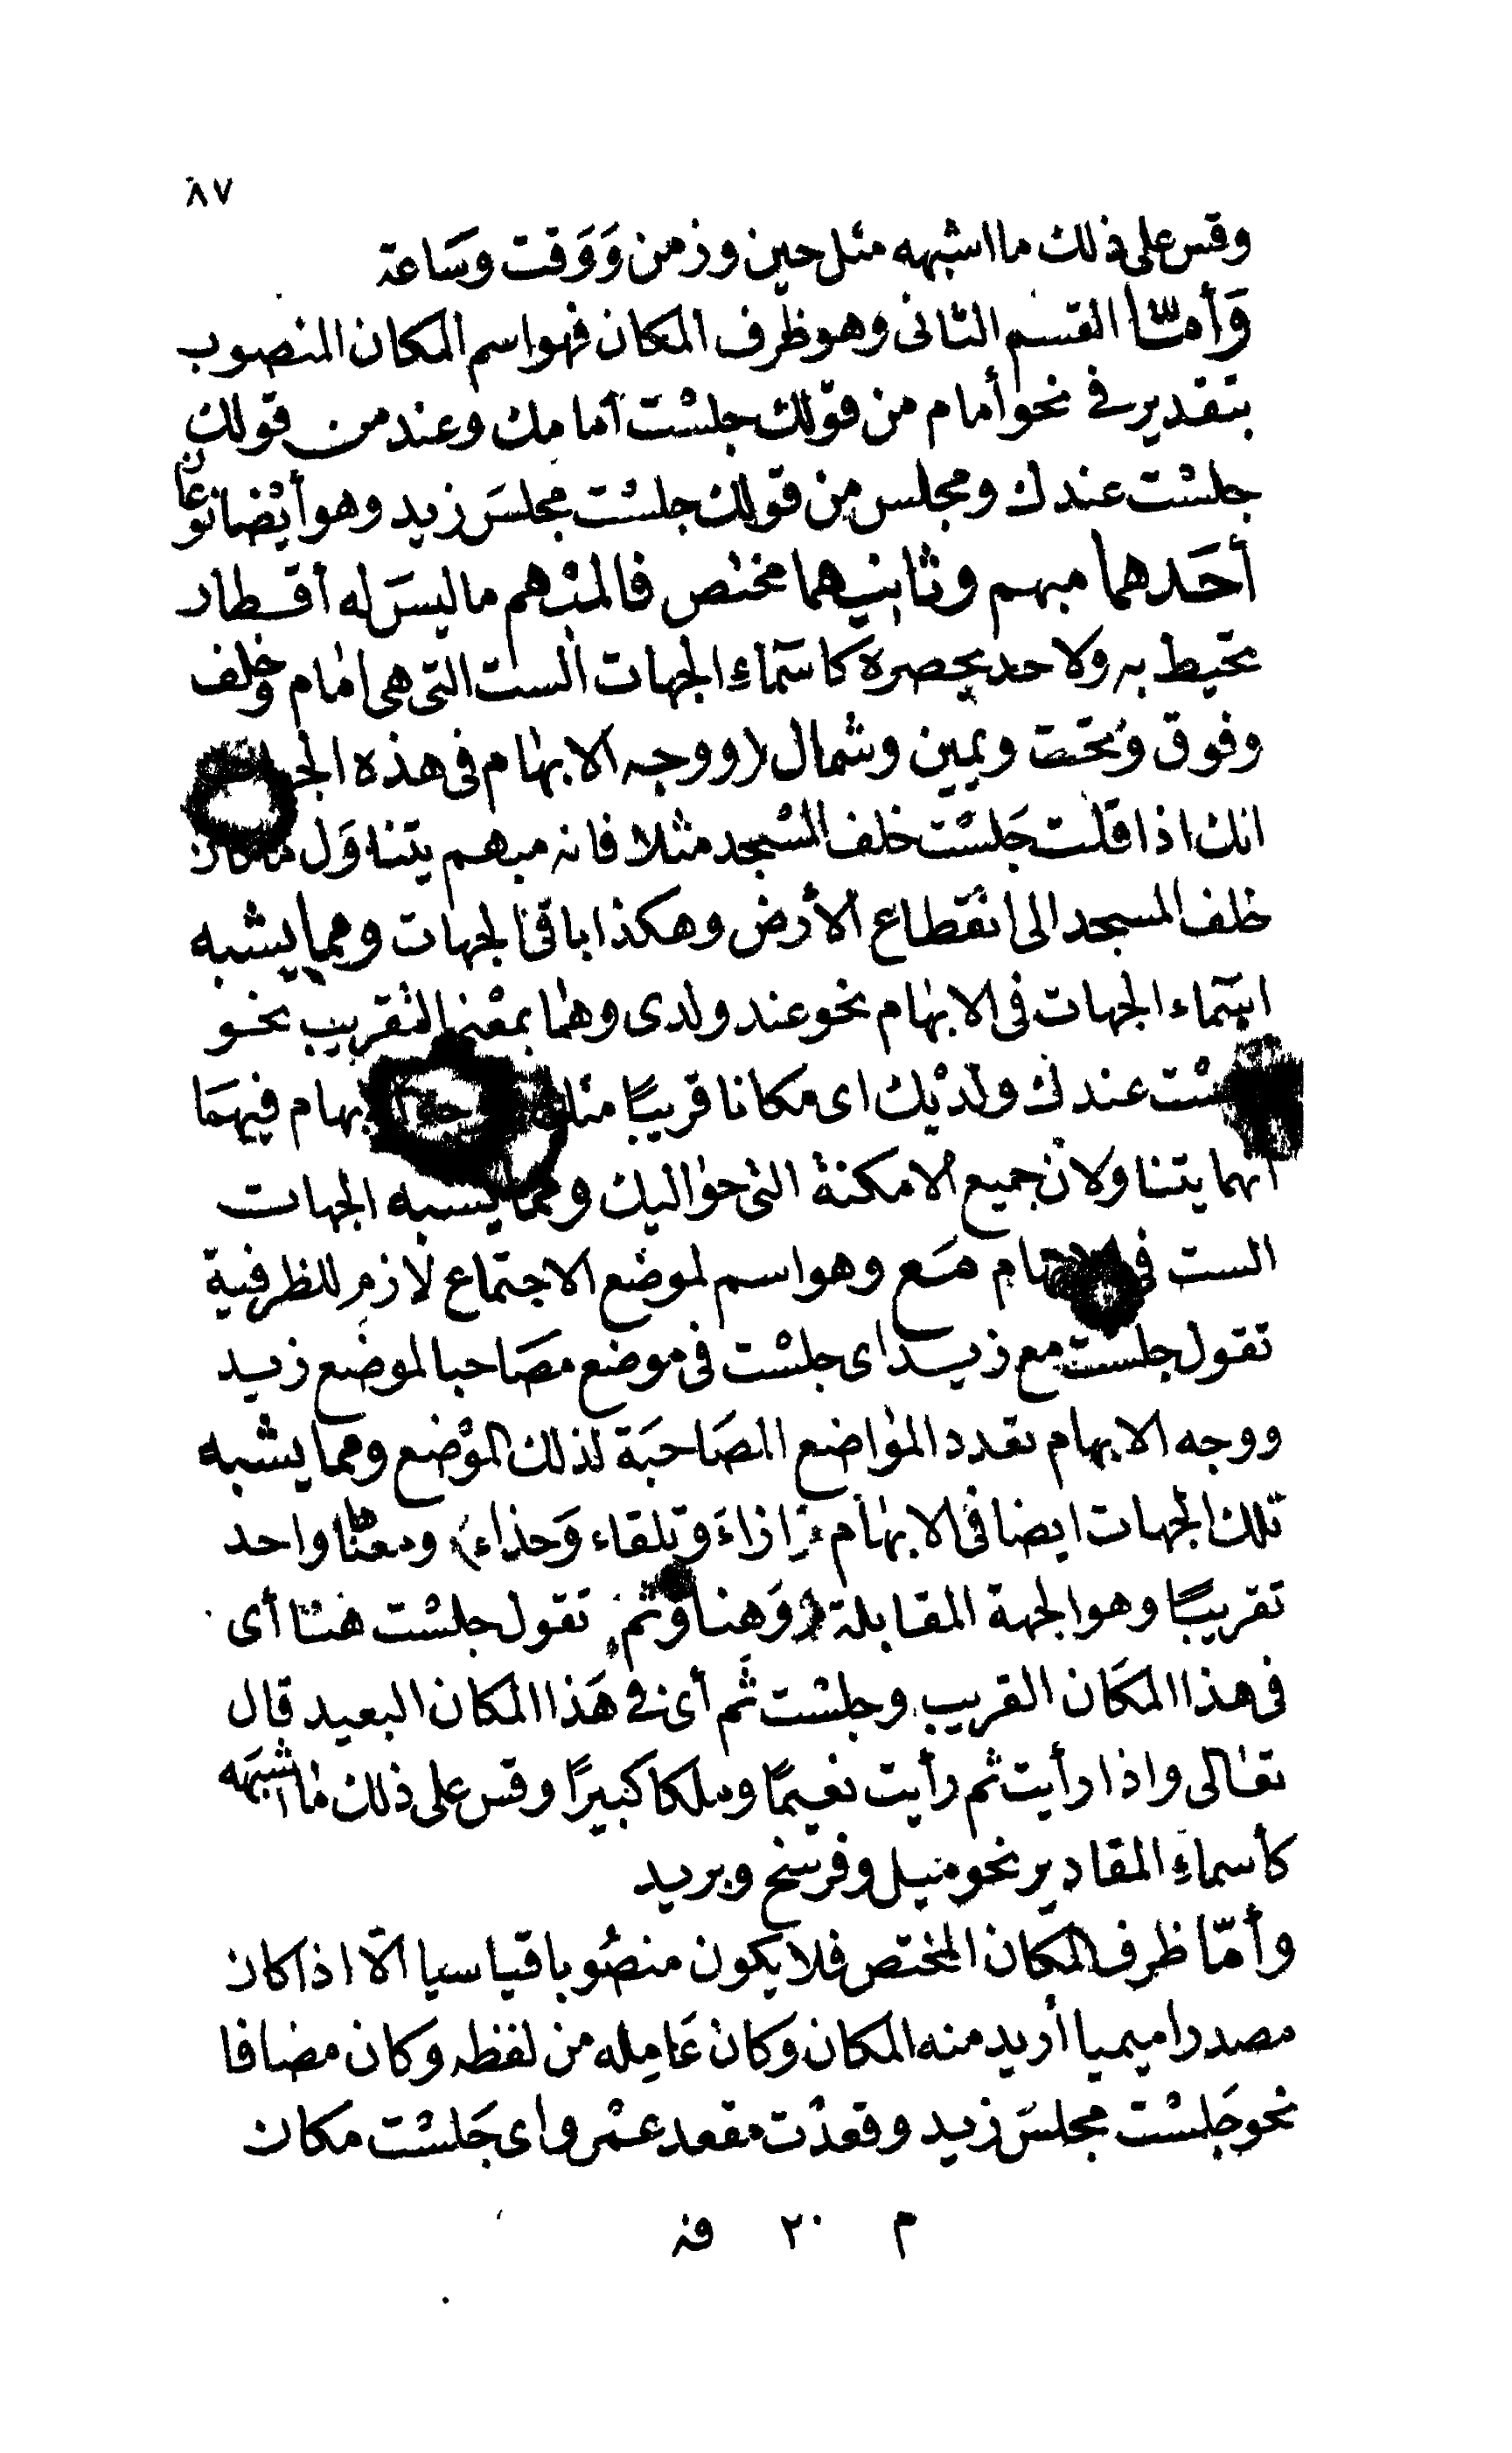 ٨٧
وقس على ذلك ما اشبهه مثل حين وزمن وَوَقت وسَاعة
وَأمّا القسم الثانى وهو ظرف المكان فهو اسم المكان المنصوب
بتقدير فى نحو أمام من قولك جلسْت أمامك وعند من قولك
جلسْت عندك ومجلس من قولك جلسْت مجلسَ زيد وهو أيْضا نوعان
أحَدهما مبهم وثانيهما مختص فالمبْهم ما ليسَ له أقطار
تحيط به ولا حد يحصره كاسَماءِ الجهات الست التى هى امام وخلف
وفوق وتحت ويمين وشمال (ووجه الابهام فى هذه
انك اذا قلت جَلسْت خلف المسْجد مثلا فانه مبهم يتناوَل ما كان
خلف المسجد الى انقطاع الأرض وهكذا باقى الجهات ومما يشبه
اسَماء الجهات فى الابهام نحو عند ولدى وهما بمعْنى التقريب نحو
عندك ولديْك اى مكانا قريبًا فيهمَا
انهما يتناولان جميع الامكنة التى حواليك ومما يشبه الجهات
الست فى الابهام مَع وهو اسم لموضع الاجتماع لازم للظرفية
تقول جلست مع زيد اى جلسْت فى موضع مصَاحبا لموضع زيد
ووجه الابهام تعدد المواضع المصَاحبَة لذلك الموْضع ومما يشبه
تلك الجهات ايضا فى الابهام (ازاءَ وتلقاء وَحذاء) ومعناها واحد
تقريبًا وهو الجهة المقابلة (وَهنا وثم) تقول جلسْت هنا أى
فى هذا المكَان القريب وجلسْت ثَم أى فى هَذا المكان البعيد قال
تعالى واذا رأيت ثم رأيت نعيمًا وملكا كبيرًا وقس على ذلك ما اشبَهه
كأسماءِ المقادير نحو ميل وفرسخ وبريد
وأمّا ظرف المكان المختص فلا يكون منصُوبا قياسيا الّا اذا كان
مصدرا ميميا أريد منه المكان وكان عَامِله من لفظه وكان مضافا
نحو جَلسْت مجلسَ زيد وقعدْت مقعد عمْرو اى جَلسْت مكان
م ٢٠ فه